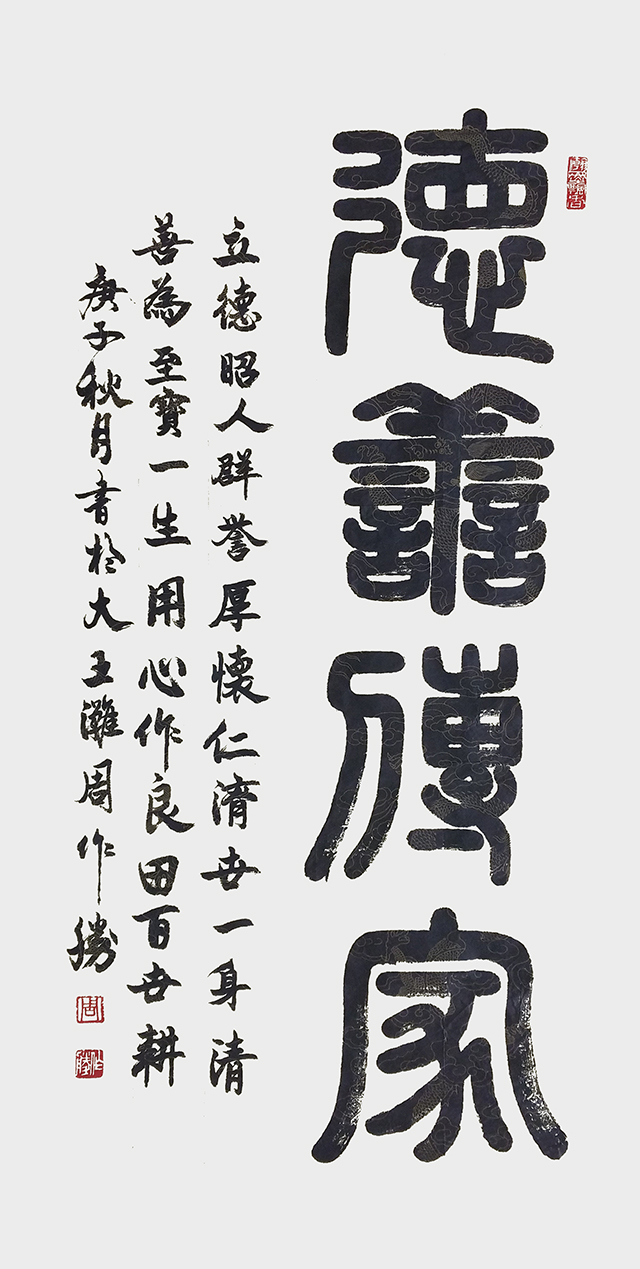 德譱傳家
立德昭人群誉厚懷仁濟世一身清
善為至寶一生用心作良田百世耕
庚子秋月書於大王灘周作勝
周
作勝